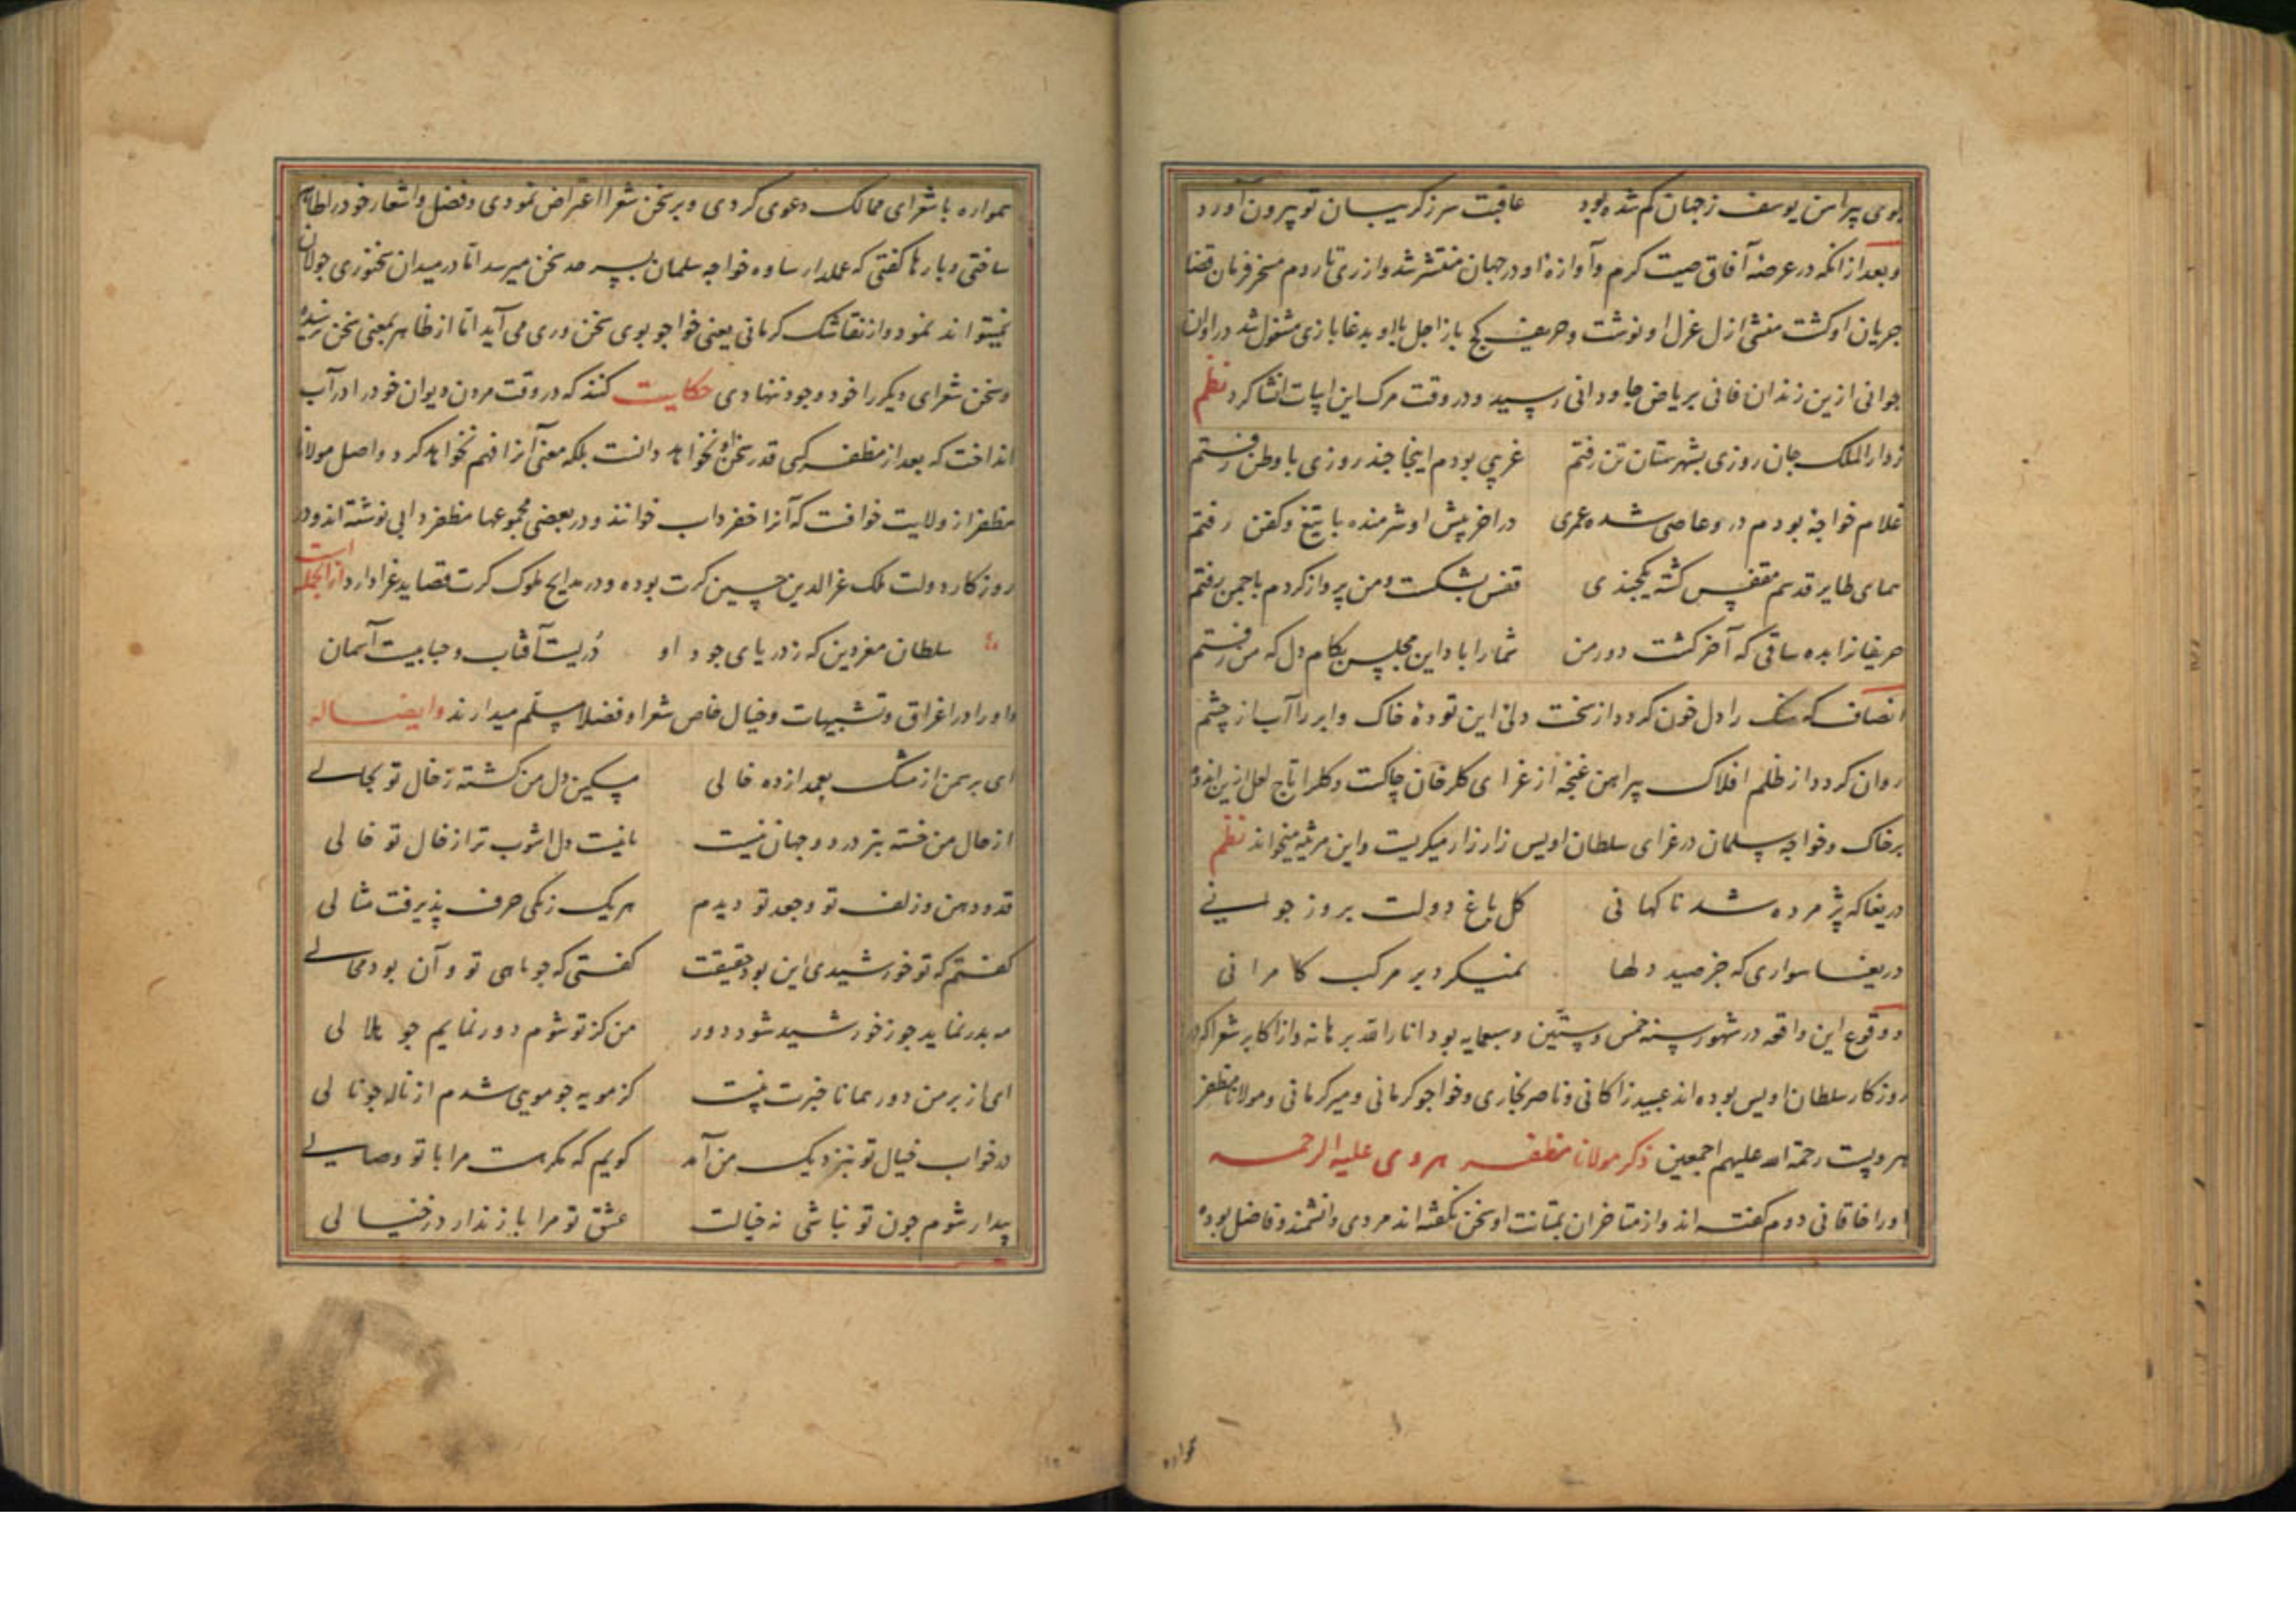 بوی پیراهن یوسف ز جهان کم شده بود عاقبت سر ز کریبان تو بیرون آورد
و بعد از انکه در عرصه آفاق صیت کرم و آوازه او در جهان منتشر شد و از ری تا روم مسخر فرمان قضا
جریان او کشت منشی ازل عزل او نوشت و حریف کج باز اجل با او بدغا بازی مشغول شد در اوان
جوانی ازین زندان فانی بریاض جاودانی رسید و در وقت مرک این ابیات انشا کرد نظم
ز دار الملک جان روزی بشهرستان تن رفتم غریبی بودم اینجا چند روزی با وطن رفتم
غلام خواجه بودم در و عاصی شده عمری در اخر پیش او شرمنده با تیغ و کفن رفتم
همای طایر قدسم مقفس کشته یکچندی قفس بشکست و من پرواز کردم با چمن رفتم
حریفانرا بده ساقی که آخر کشت دور من شما را باد این مجلس بکام دل که من رفتم
انصاف که سنک را دل خون کردد از سخت دلی این توده خاک و ابر را آب از چشم
روان کردد از ظلم افلاک پیراهن غنچه از عزای کلرخان چاکست و کلرا تاج لعل ازین اندوه
بر خاک و خواجه سلمان در عزای سلطان اویس زار زار میکریست و این مرثیه میخواند نظم
دریغا که پژمرده شد ناکهانی کل باغ دولت بروز جوانی
دریغا سواری که جز صید دلها نمیکرد بر مرکب کامرانی
و وقوع این واقعه در شهور سنه خمس و ستین و سبعمایه بود انار الله برهانه و از اکابر شعرا که در
روزکار سلطان اویس بوده اند عبید زاکانی و ناصر بخاری و خواجو کرمانی و میر کرمانی و مولانا مظفر
هرویست رحمة الله علیهم اجمعین ذکر مولانا مظفر هروی علیه الرحمه
او را خاقانی دوم کفته اند و از متاخران بمتانت او سخن نکفته اند مردی دانشمند و فاضل بوده
همواره
همواره با شعرای ممالک دعوی کردی و بر سخن شعرا اعتراض نمودی و فضل و اشعار خود را ظاهر
ساختی و بارها کفتی که عملدار ساوه خواجه سلمان بسرحد سخن میرسد اما در میدان سخنوری جولان
نمیتواند نمود و از نقاشک کرمانی یعنی خواجو بوی سخن وری می آید اما از ظاهر بمعنی سخن نرسیده
و سخن شعرای دیکر را خود وجود ننهادی حکایت کنند که در وقت مردن دیوان خود را در آب
انداخت که بعد از مظفر کسی قدر سخن او نخواهد دانست بلکه معنی آنرا فهم نخواهد کرد و اصل مولانا
مظفر از ولایت خوافست که آنرا خضرداب خوانند و در بعضی مجموعها مظفر دابی نوشته اند و در
روزکار دولت ملک عز الدین حسین کرت بوده و در مدایح ملوک کرت قصاید غرا دارد از آنجمله است
سلطان معز دین که ز دریای جود او دریست آفتاب و حبابیست آسمان
و او را در اغراق و تشبیهات و خیال خاص شعرا و فضلا مسلم میدارند و ایضا له
ای بر سمن از مشک بعمدا زده خالی مسکین دل من کشته ز خال تو بحالی
از حال من خسته بتر در دو جهان نیست تا نیست دل اشوب تر از خال تو خالی
قد و دهن و زلف تو و جعد تو دیدم هر یک ز یکی حرف پذیرفت مثالی
کفتم که تو خورشیدی این بود حقیقت کفتی که جو ماهی تو و آن بود محالی
مه بدر نماید جو ز خورشید شود دور من کز تو شوم دور نمایم جو هلالی
ای از بر من دور همانا خبرت نیست کز مویه جو مویی شدم از ناله جو نالی
در خواب خیال تو بنزدیک من آمد کویم که مکر هست مرا با تو وصالی
بیدار شوم جون تو نباشی نه خیالت عشق تو مرا باز ندارد ز خیالی